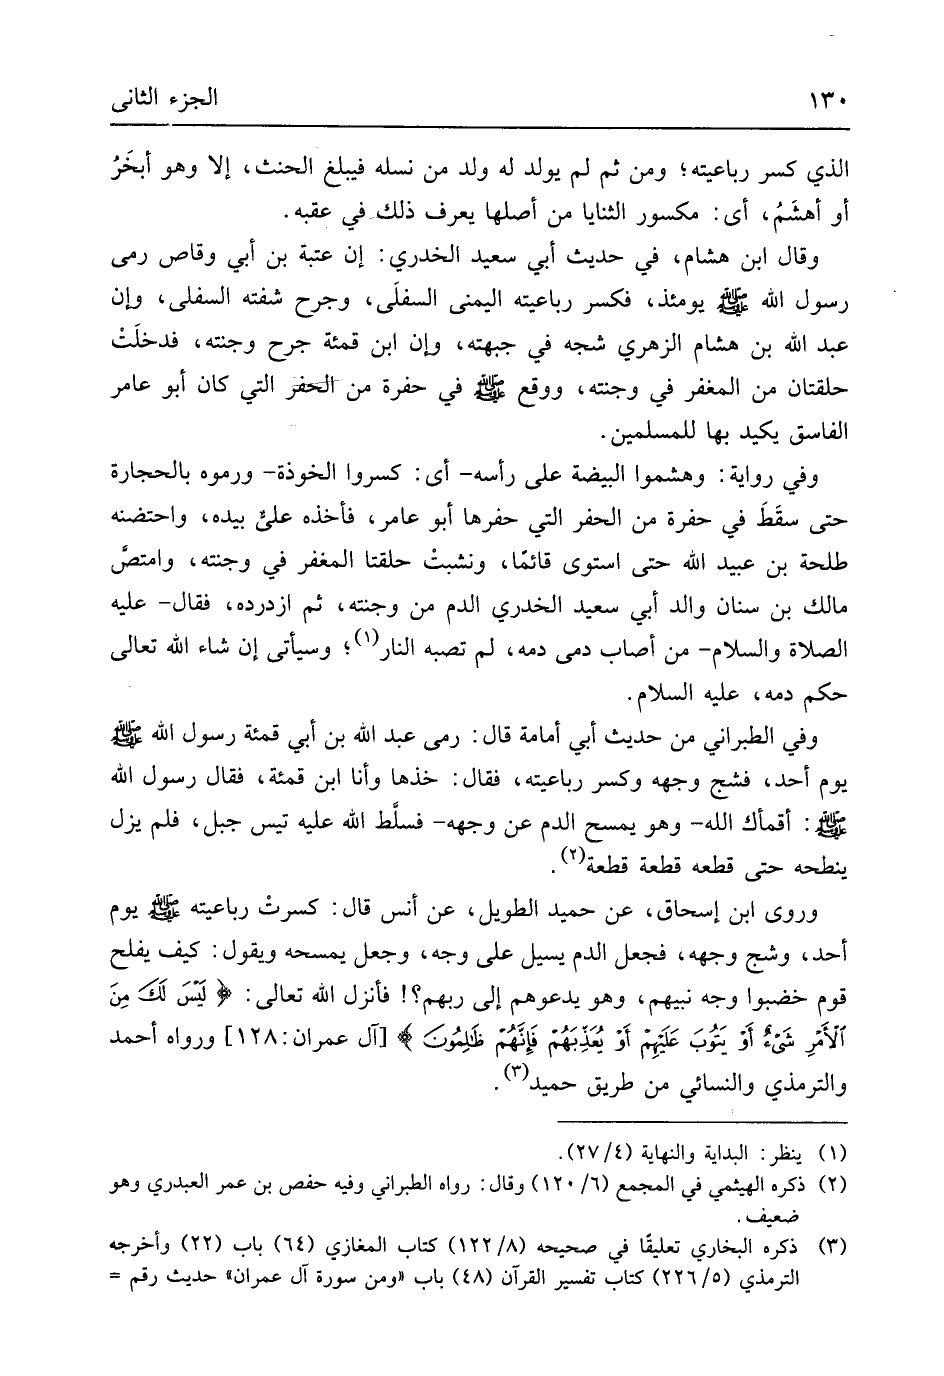 ١٣٠ الجزء الثانى
الذي كسر رباعيته؛ ومن ثم لم يولد له ولد من نسله فيبلغ الحنث، إلا وهو أبخَرُ
أو أهشَمُ، أى: مكسور الثنايا من أصلها يعرف ذلك في عقبه.
وقال ابن هشام، في حديث أبي سعيد الخدري: إن عتبة بن أبي وقاص رمى
رسول الله ﷺ يومئذ، فكسر رباعيته اليمنى السفلَى، وجرح شفته السفلى، وإن
عبد الله بن هشام الزهري شجه في جبهته، وإن ابن قمئة جرح وجنته، فدخلَتْ
حلقتان من المغفر في وجنته، ووقع ﷺ في حفرة من الحفر التي كان أبو عامر
الفاسق يكيد بها للمسلمين.
وفي رواية: وهشموا البيضة على رأسه- أى: كسروا الخوذة- ورموه بالحجارة
حتى سقَطَ في حفرة من الحفر التي حفرها أبو عامر، فأخذه علىٌّ بيده، واحتضنه
طلحة بن عبيد الله حتى استوى قائمًا، ونشبتْ حلقتا المغفر في وجنته، وامتصَّ
مالك بن سنان والد أبي سعيد الخدري الدم من وجنته، ثم ازدرده، فقال- عليه
الصلاة والسلام- من أصاب دمى دمه، لم تصبه النار(١)؛ وسيأتى إن شاء الله تعالى
حكم دمه، عليه السلام.
وفي الطبراني من حديث أبي أمامة قال: رمى عبد الله بن أبي قمئة رسول الله ﷺ
يوم أحد، فشج وجهه وكسر رباعيته، فقال: خذها وأنا ابن قمئة، فقال رسول الله
ﷺ: أقمأك الله- وهو يمسح الدم عن وجهه- فسلَّط الله عليه تيس جبل، فلم يزل
ينطحه حتى قطعه قطعة قطعة(٢).
وروى ابن إسحاق، عن حميد الطويل، عن أنس قال: كسرتْ رباعيته ﷺ يوم
أحد، وشج وجهه، فجعل الدم يسيل على وجه، وجعل يمسحه ويقول: كيف يفلح
قوم خضبوا وجه نبيهم، وهو يدعوهم إلى ربهم؟! فأنزل الله تعالى: ﴿ لَيْسَ لَكَ مِنَ
ٱلْأَمْرِ شَىْءٌ أَوْ يَتُوبَ عَلَيْهِمْ أَوْ يُعَذِّبَهُمْ فَإِنَّهُمْ ظَـٰلِمُونَ ﴾ [آل عمران:١٢٨] ورواه أحمد
والترمذي والنسائي من طريق حميد(٣).
(١) ينظر: البداية والنهاية (٢٧/٤).
(٢) ذكره الهيثمي في المجمع (١٢٠/٦) وقال: رواه الطبراني وفيه حفص بن عمر العبدري وهو
ضعيف.
(٣) ذكره البخاري تعليقًا في صحيحه (١٢٢/٨) كتاب المغازي (٦٤) باب (٢٢) وأخرجه
الترمذي (٢٢٦/٥) كتاب تفسير القرآن (٤٨) باب «ومن سورة آل عمران» حديث رقم =